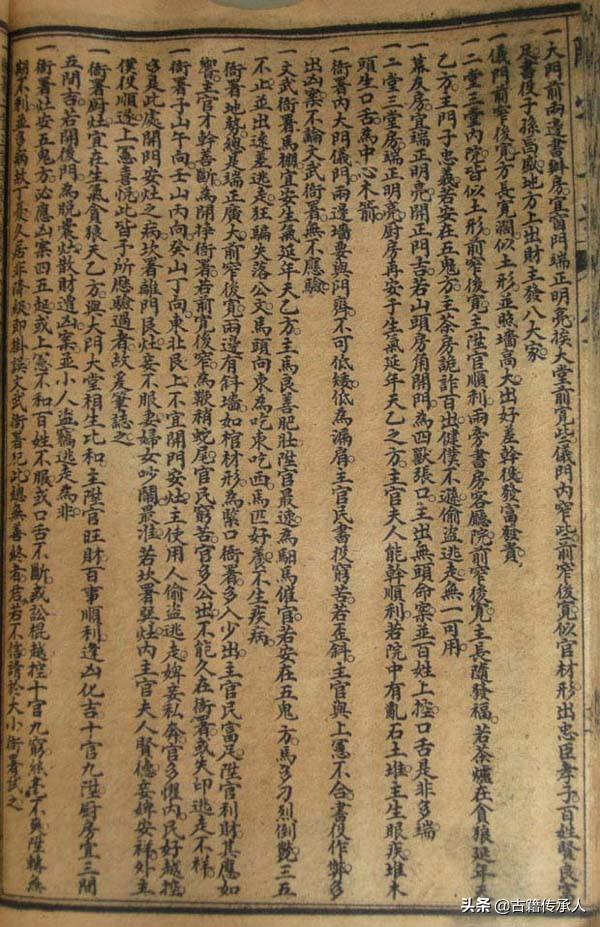 一大門前兩邊書辦房宜官門端正明亮挨大堂前寬些儀門內窄些前窄後寬似官材形出忠臣孝子百姓賢良富
足書役子孫昌盛地方上出財主發八大家
一儀門前窄後寬方長寬濶似土形並照墻高大出好差幹役發富發貴
一二堂三堂內院皆似土形前窄後寬主陞官順利兩旁書房客廳院前窄後寬主長隨發福若茶爐在貪狼延年天
乙方主門子忠義若安在五鬼方主茶房詭詐百出健僕不遜偷盜逃走無一可用
一幕友房宜端正明亮開正門吉若山頭房角開門為四獸張口主出無頭命案並百姓上控口舌是非多端
一二堂三堂房端正明亮厨房再安于生氣延年天乙之方主官夫人能幹順利若院中有亂石土堆主生眼疾堆木
頭生口舌為中心木箭
一衙署內大門儀門兩邊墻要與門齊不可低矮低為漏肩主官民書役窮苦若歪斜主官與上憲不合書役作弊多
出凶案不論文武衙署無不應驗
一文武衙署馬棚宜安生氣延年天乙方主馬良善肥壯陞官最速為馹馬催官若安在五鬼方馬多刁烈倒斃三五
不止並出遠差逃走狂騙失落公文馬頭向東為吃東吃西馬匹好養不生疾病
一衙署地勢總是端正廣大前窄後寬兩邊有斜墻如棺材形為緊口衙署多入少出主官民富足陞官利財其應如
響主官才幹善斷為開掙衙署若前寬後窄為鞭稍蛇尾官民窮苦官多公出不能久在衙署或失印逃走不祥
一衙署子山午向壬山丙向癸山丁向東北艮上不宜開門安灶主使用人偷盜逃走婢妾私奔官多懼內民好越控
多是此處開門安灶之病坎署離門艮灶妾不服妻婦女吵鬧最准若坎署巽灶內主官夫人賢德妾婢安祥外主
僕役順遂上憲喜悅此皆予所應驗過者故援筆誌之
一衙署厨灶宜在生氣貪狼天乙方與大門大堂相生比和主陞官旺財百事順利逢凶化吉十官九陞厨房宜三間
五間吉若開後門為脫囊灶散財遺凶案並小人盜竊逃走為非
一衙署灶安五鬼方必應凶案四五起或上憲不和百姓不服或口舌不斷或訟棍越控十官九窮
期不利並多病故丁憂久居非降級即掛誤文武衙署犯此總無善終者君若不信請於大小衙署試之
頭条 @古籍传承人